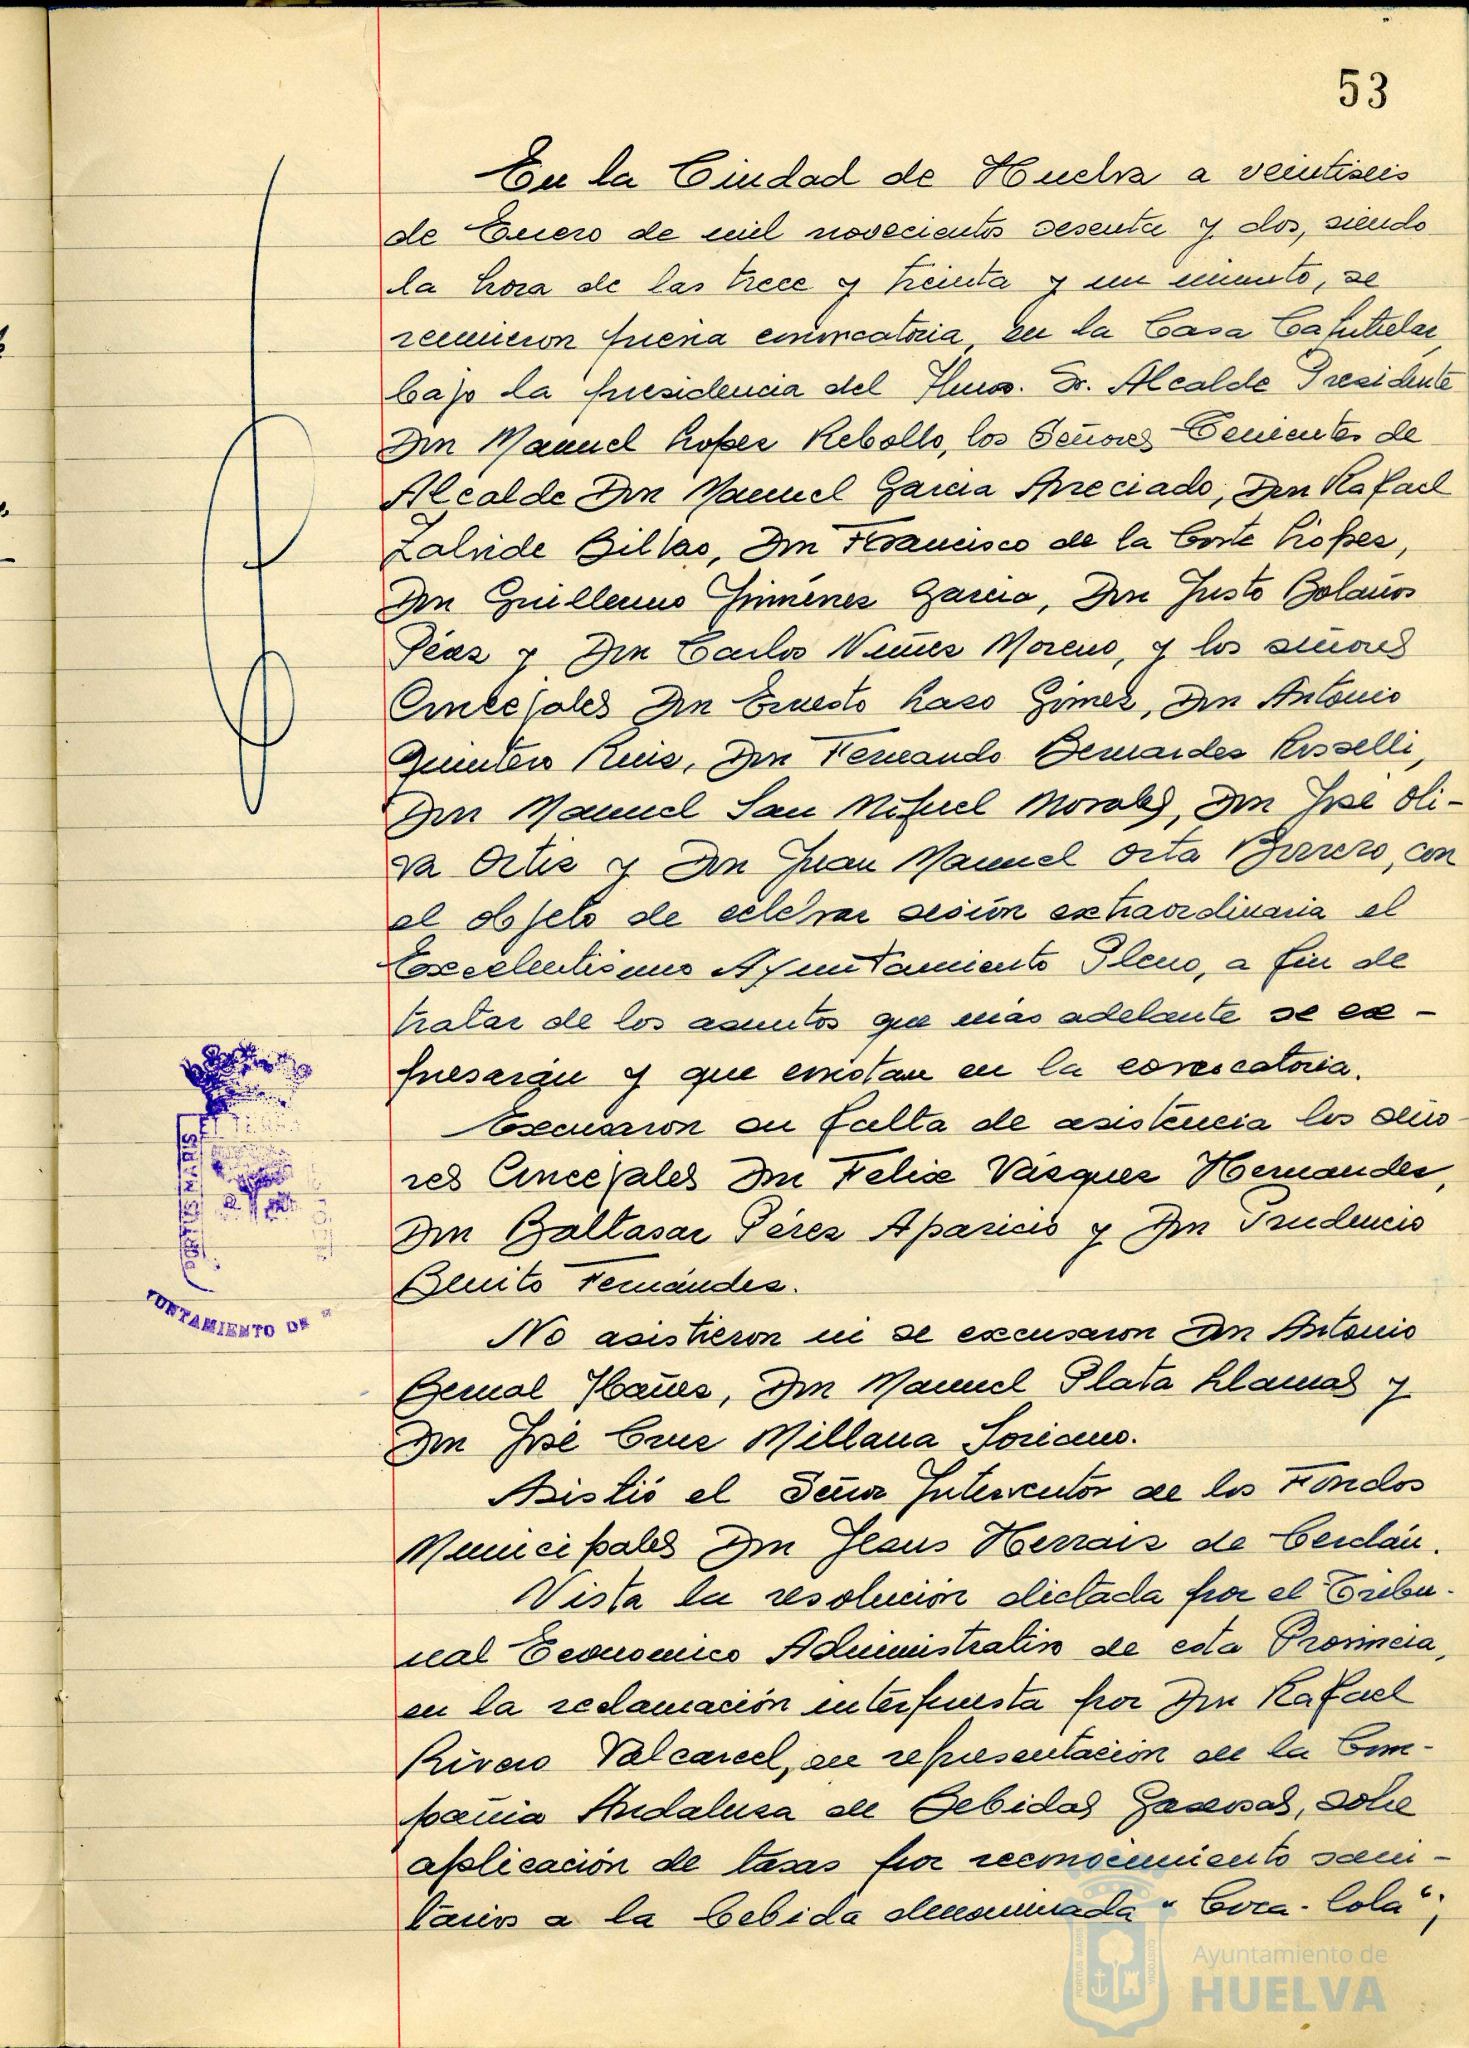 53
En la Ciudad de Huelva a veintiseis
de Enero de mil novecientos sesenta y dos, siendo
la hora de las trece y treinta y un minuto, se
reunieron previa convocatoria, en la Casa Capitular,
bajo la presidencia del Ilmo. Sr. Alcalde Presidente
Don Manuel Lopez Rebollo, los Señores Tenientes de
Alcalde Don Manuel Garcia Preciado, Don Rafael
Zalvide Bilbao, Don Francisco de la Corte López,
Don Guillermo Jiménez Garcia, Don Justo Bolaños
Pérez y Don Carlos Núñez Moreno, y los señores
Concejales Don Ernesto Lazo Gómez, Don Antonio
Quintero Ruiz, Don Fernando Bernardez Rosselli,
Don Manuel San Miguel Morales, Don José Oli-
va Ortiz y Don Juan Manuel Orta Borrero, con
el objeto de celebrar sesión extraordinaria el
Excelentisimo Ayuntamiento Pleno, a fin de
tratar de los asuntos que más adelante se ex-
presarán y que constan en la convocatoria.
Excusaron su falta de asistencia los seño-
res Concejales Don Felix Vázquez Hernandez,
Don Baltasar Pérez Aparicio y Don Prudencio
Benito Fernández.
No asistieron ni se excusaron Don Antonio
Bernal Ibañez, Don Manuel Plata Llamas y
Don José Cruz Millana Soriano.
Asistió el Señor Interventor de los Fondos
Municipales Don Jesus Herraiz de Cerdán.
Vista la resolución dictada por el Tribu-
nal Economico Administrativo de esta Provincia,
en la reclamación interpuesta por Don Rafael
Rivero Valcarcel, en representación de la Com-
pañia Andaluza de Bebidas Gaseosas, sobre
aplicación de tasas por reconocimiento sani-
tarios a la bebida denominada "Coca-Cola";
PORTUS MARIS
ET TERRAE
YUNTAMIENTO DE
PORTUS MARIS
CUSTODIA
Ayuntamiento de
HUELVA